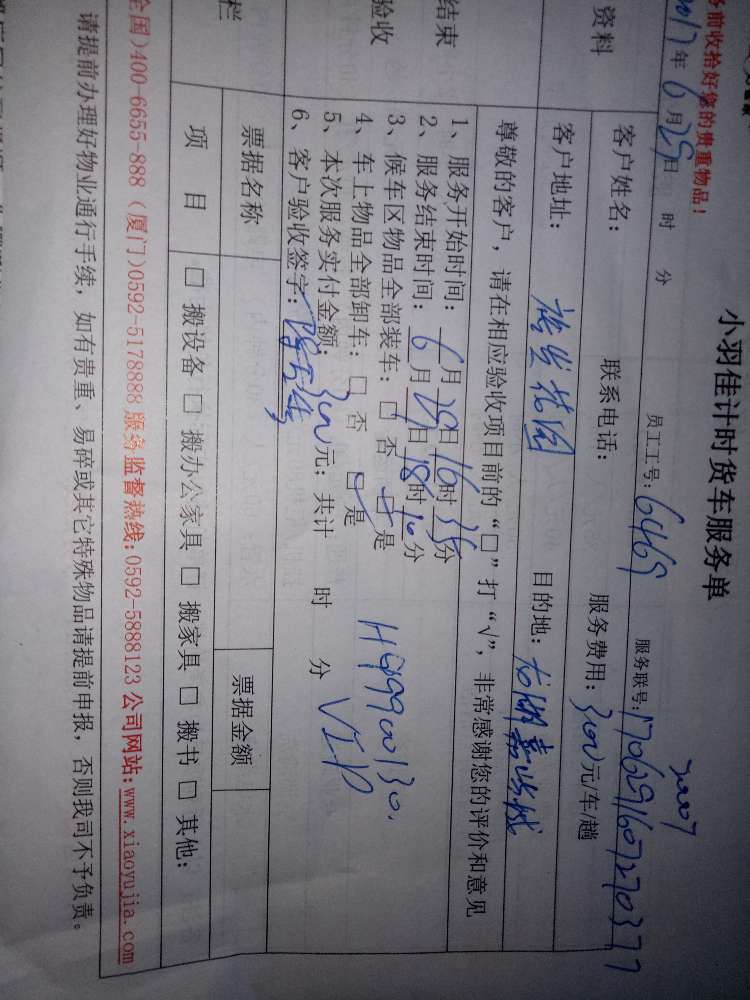 小羽佳计时货车服务单
前收拾好您的贵重物品！
2017年6月29日 时 分 员工工号：6469 服务联号：
客户姓名： 联系电话： 服务费用：300元/车/趟
资料
客户地址： 目的地：
尊敬的客户，请在相应验收项目前的“□”打“√”，非常感谢您的评价和意见
结束
验收
1、服务开始时间：6月29日16时35分
2、服务结束时间：6月29日18时10分
3、候车区物品全部装车：□ 否 □ 是
4、车上物品全部卸车：□ 否 □ 是
5、本次服务实付金额：300元；共计 时 分
6、客户验收签字：
VIP
栏
票据名称 票据金额
项 目 □ 搬设备 □ 搬办公家具 □ 搬家具 □ 搬书 □ 其他：
全国)400-6655-888 (厦门)0592-5178888 服务监督热线:0592-5888123 公司网站:www.xiaoyujia.com
请提前办理好物业通行手续，如有贵重、易碎或其它特殊物品请提前申报，否则我司不予负责。